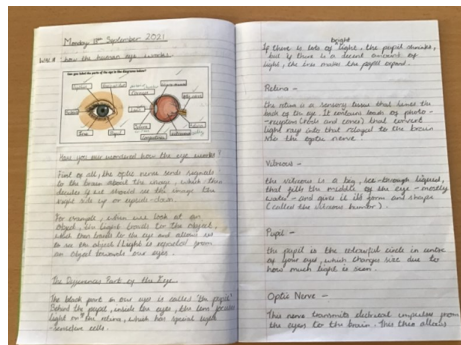 Monday September 2021
how the human eye works
Can you label the parts of the eye in the diagrams below?
Have you ever wondered how the eye works?
First of all, the optic nerve sends signals
to the brain about the image, which then
decides if we should see the image the
right side up or upside-down.
For example, when we look at an
object, the light travels to the object,
which then travels to the eye and allows us
to see the object / light is reflected from
an object towards our eyes.
The Different Parts of the Eye
The black part in our eye is called 'the pupil'
Behind the pupil, inside the eye, the lens focuses
light on the retina, which has special light
-sensitive cells.
bright
If there is lots of light, the pupil shrinks,
but if there is a decent amount of
light, the makes the pupil expand.
Retina -
the retina is a sensory tissue that lines the
back of the eye. It contains loads of photo-
receptors (rods and cones) that convert
light rays into that relayed to the brain
via the optic nerve.
Vitreous -
the vitreous is a see-through liquid,
that fills the middle of the eye - mostly
water - and gives it its form and shape
(called the vitreous humor).
Pupil -
the pupil is the colourful circle in centre
of your eye, which changes size due to
how much light is seen.
Optic Nerve -
This nerve transmits electrical impulses from
the eyes to the brain. This then allows